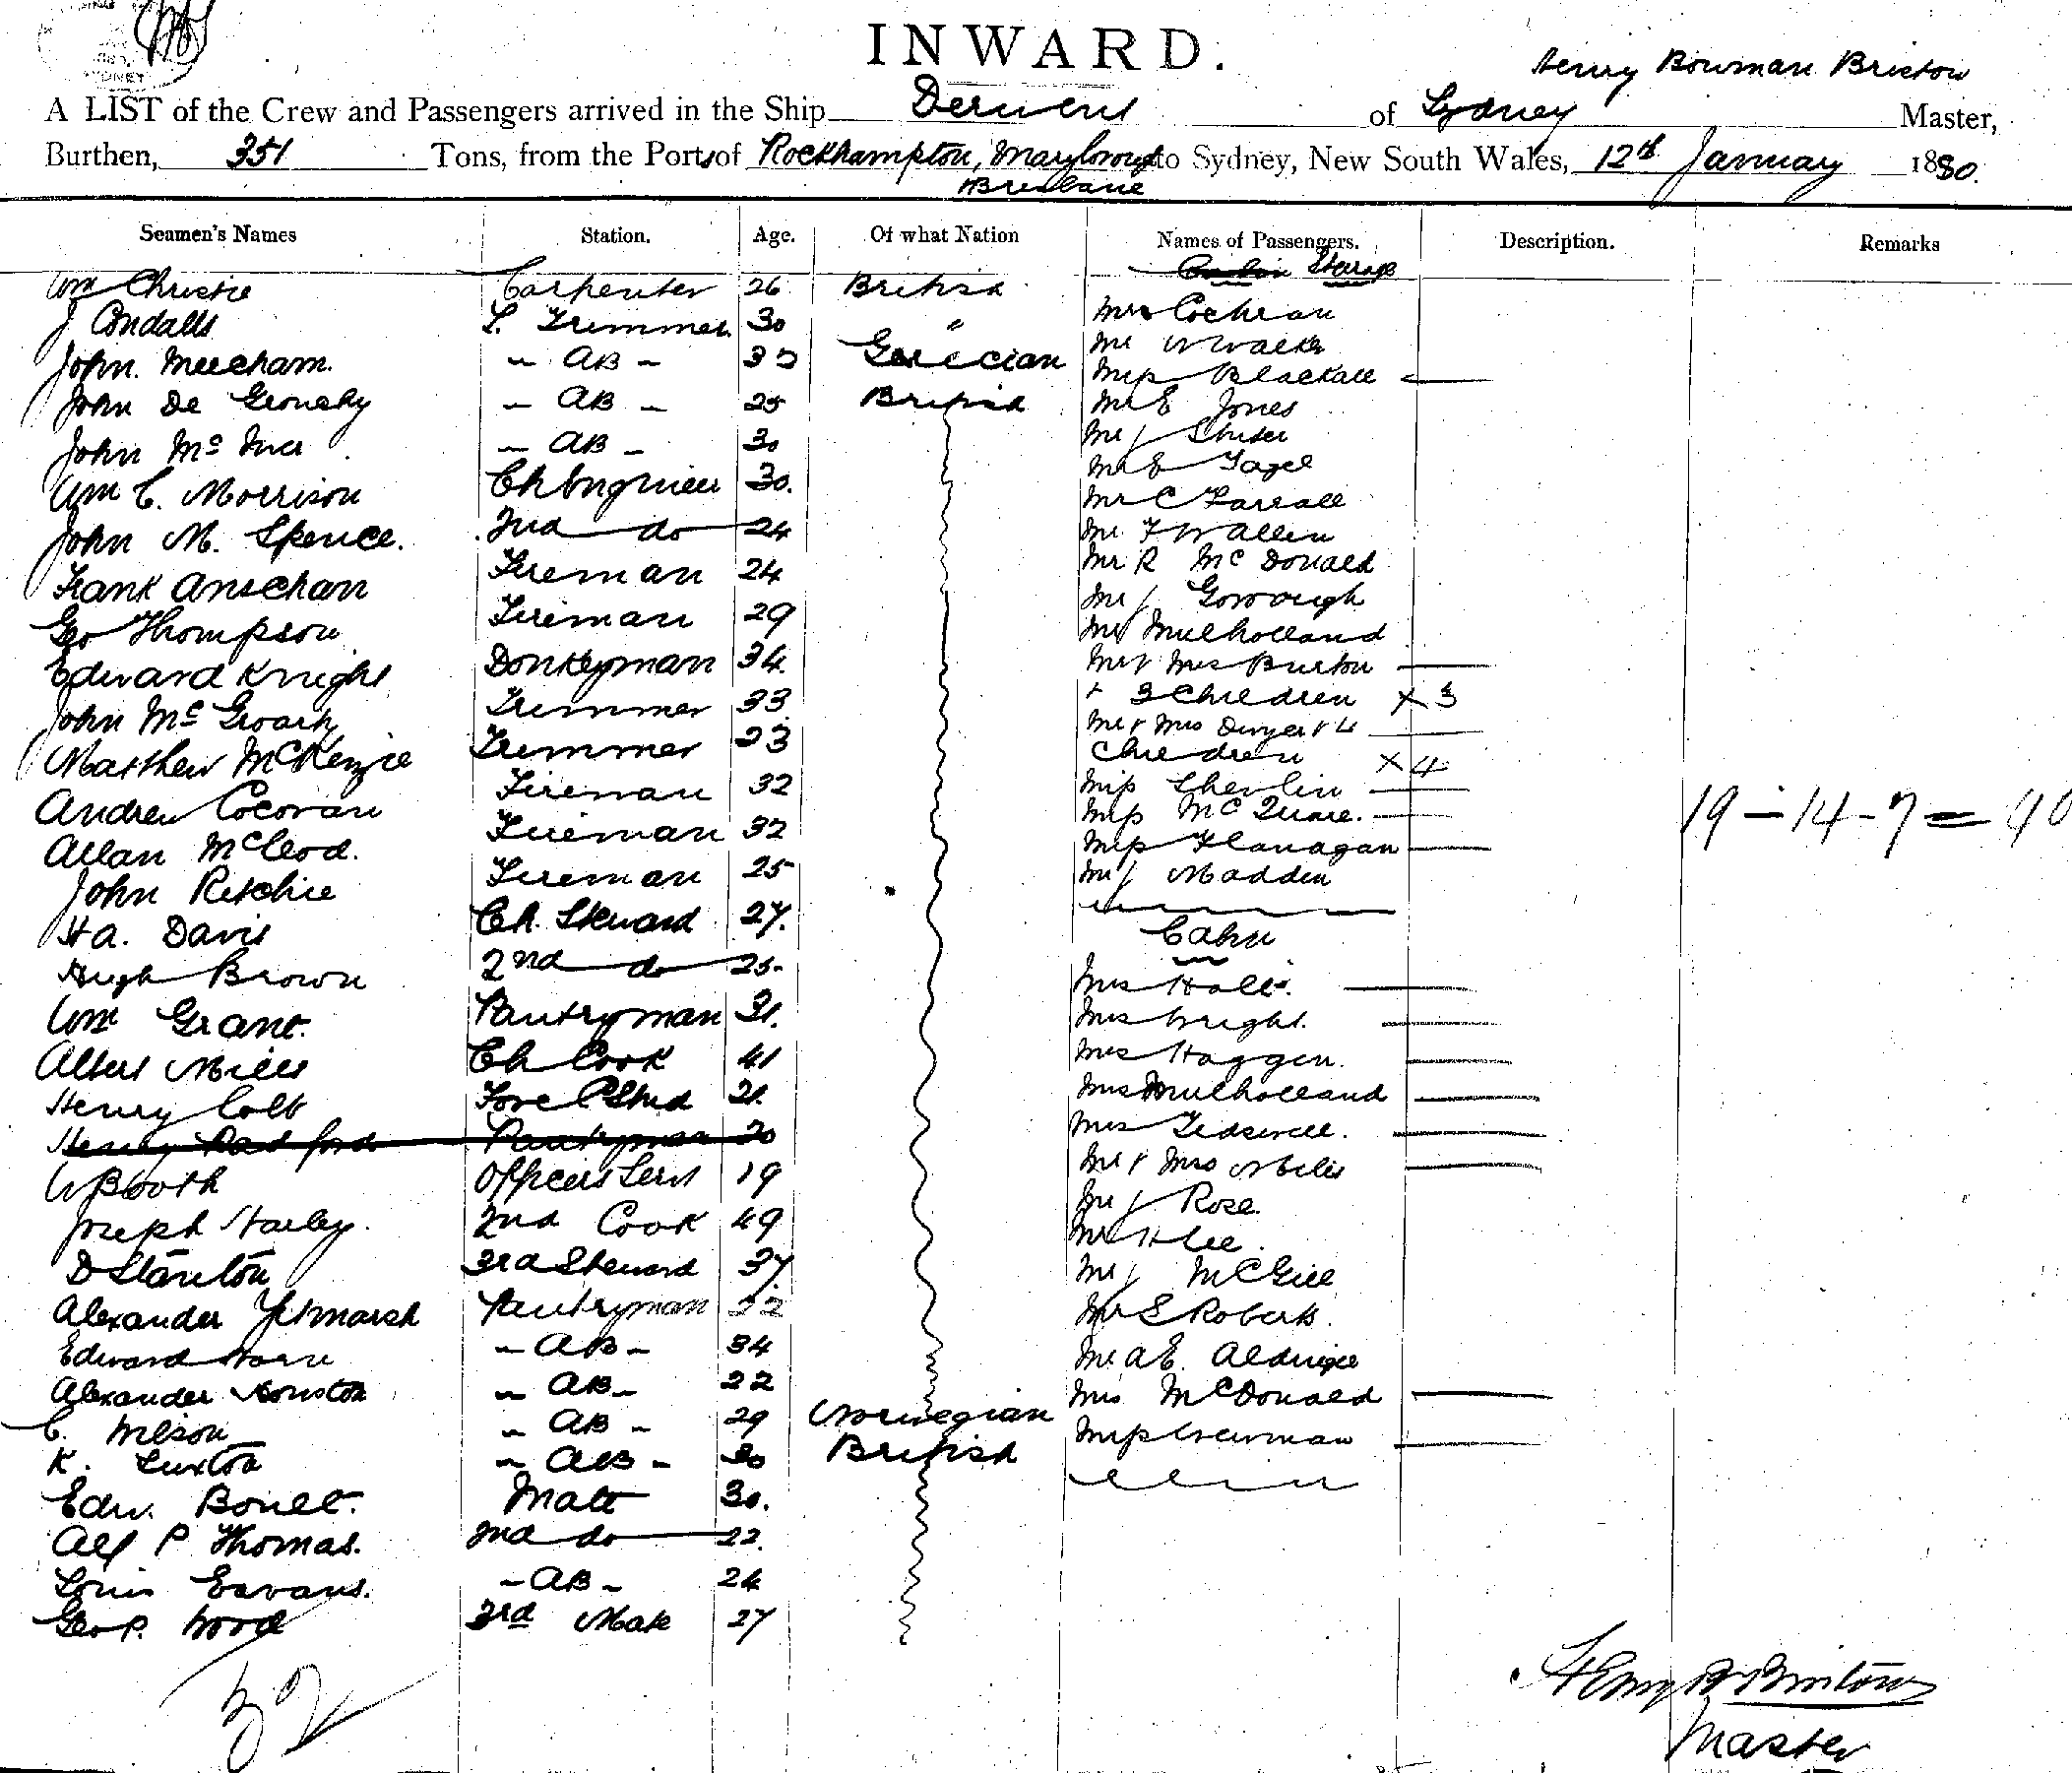 INWARD.
Henry Bowman Bristow
A LIST of the Crew and Passengers arrived in the Ship Derwent of Sydney Master,
Burthen, 351 Tons, from the Ports of Rockhampton, Maryborough to Sydney, New South Wales, 12th January 1880.
Brisbane
Seamen's Names Station. Age. Of what Nation Names of Passengers. Description. Remarks
Steerage
Wm Christie Carpenter 26 British
J Condalls L. Trimmer 30 " Mrs Cochran
John Meecham. AB Grecian Mr W Walker
Miss Blackall
John De AB 25 British Mr E Jones
John Mc AB 30 Mr J
Wm C. Morrison Ch Engineer 30. Mr E
Mr C Farrall
John M. Spence. 2nd do 24 Mr F Wallen
Frank Fireman 24 Mr R McDonald
Geo Thompson Fireman 29 Mr J
Mr Mulholland
Edward Knight Donkeyman 34. Mr & Mrs Burton
John Mc Groarty Trimmer 33 + 3 Children X 3
Mr & Mrs Dwyer & 4
Matthew McKenzie Trimmer 23 Children X 4
Andrew Cocoran Fireman 32 Miss Shevlin
Miss Mc
19 - 14 - 7 = 40
Allan McLeod. Fireman 32 Miss Flanagan
John Ritchie Fireman 25 Mr J Madden
H A. Davis Ch. Steward 27.
Cabin
Hugh Brown 2nd do 25. Mrs Hall.
Wm Grant. Pantryman 31. Mrs Wright.
Albert Miles Ch Cook 41 Mrs Haggen.
Henry Colb Fore C Stwd 21. Mrs Mulholland
Henry Radford Pantryman 20 Mrs Tidswell.
W Booth Officers Servt 19 Mr & Mrs Miles
Joseph Harley. 2nd Cook 49 Mr J Rose.
Mr H Lee.
D Stanton 3rd Steward 37. Mr J McGill
Alexander Titmarsh Pantryman 22 Mr E Roberts.
Edward AB 34 Mr A E. Aldridge
Alexander Houston AB 22 Mrs McDonald
C. Nilson AB 29 Norwegian Miss Crewman
K. Luxton AB 30 British
Edw. Boult. Mate 30.
Alf P Thomas. 2nd do 22.
Louis Eavans. AB 24
Geo P. Wood 3rd Mate 27
Henry B Bristow
Master